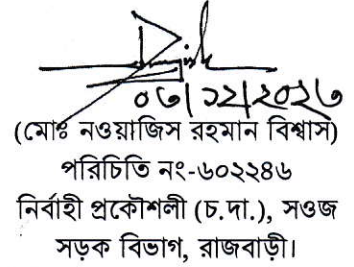 ০৬|১২|২০২৩
(মোঃ নওয়াজিস রহমান বিশ্বাস)
পরিচিতি নং-৬০২২৪৬
নির্বাহী প্রকৌশলী (চ.দা.), সওজ
সড়ক বিভাগ, রাজবাড়ী।